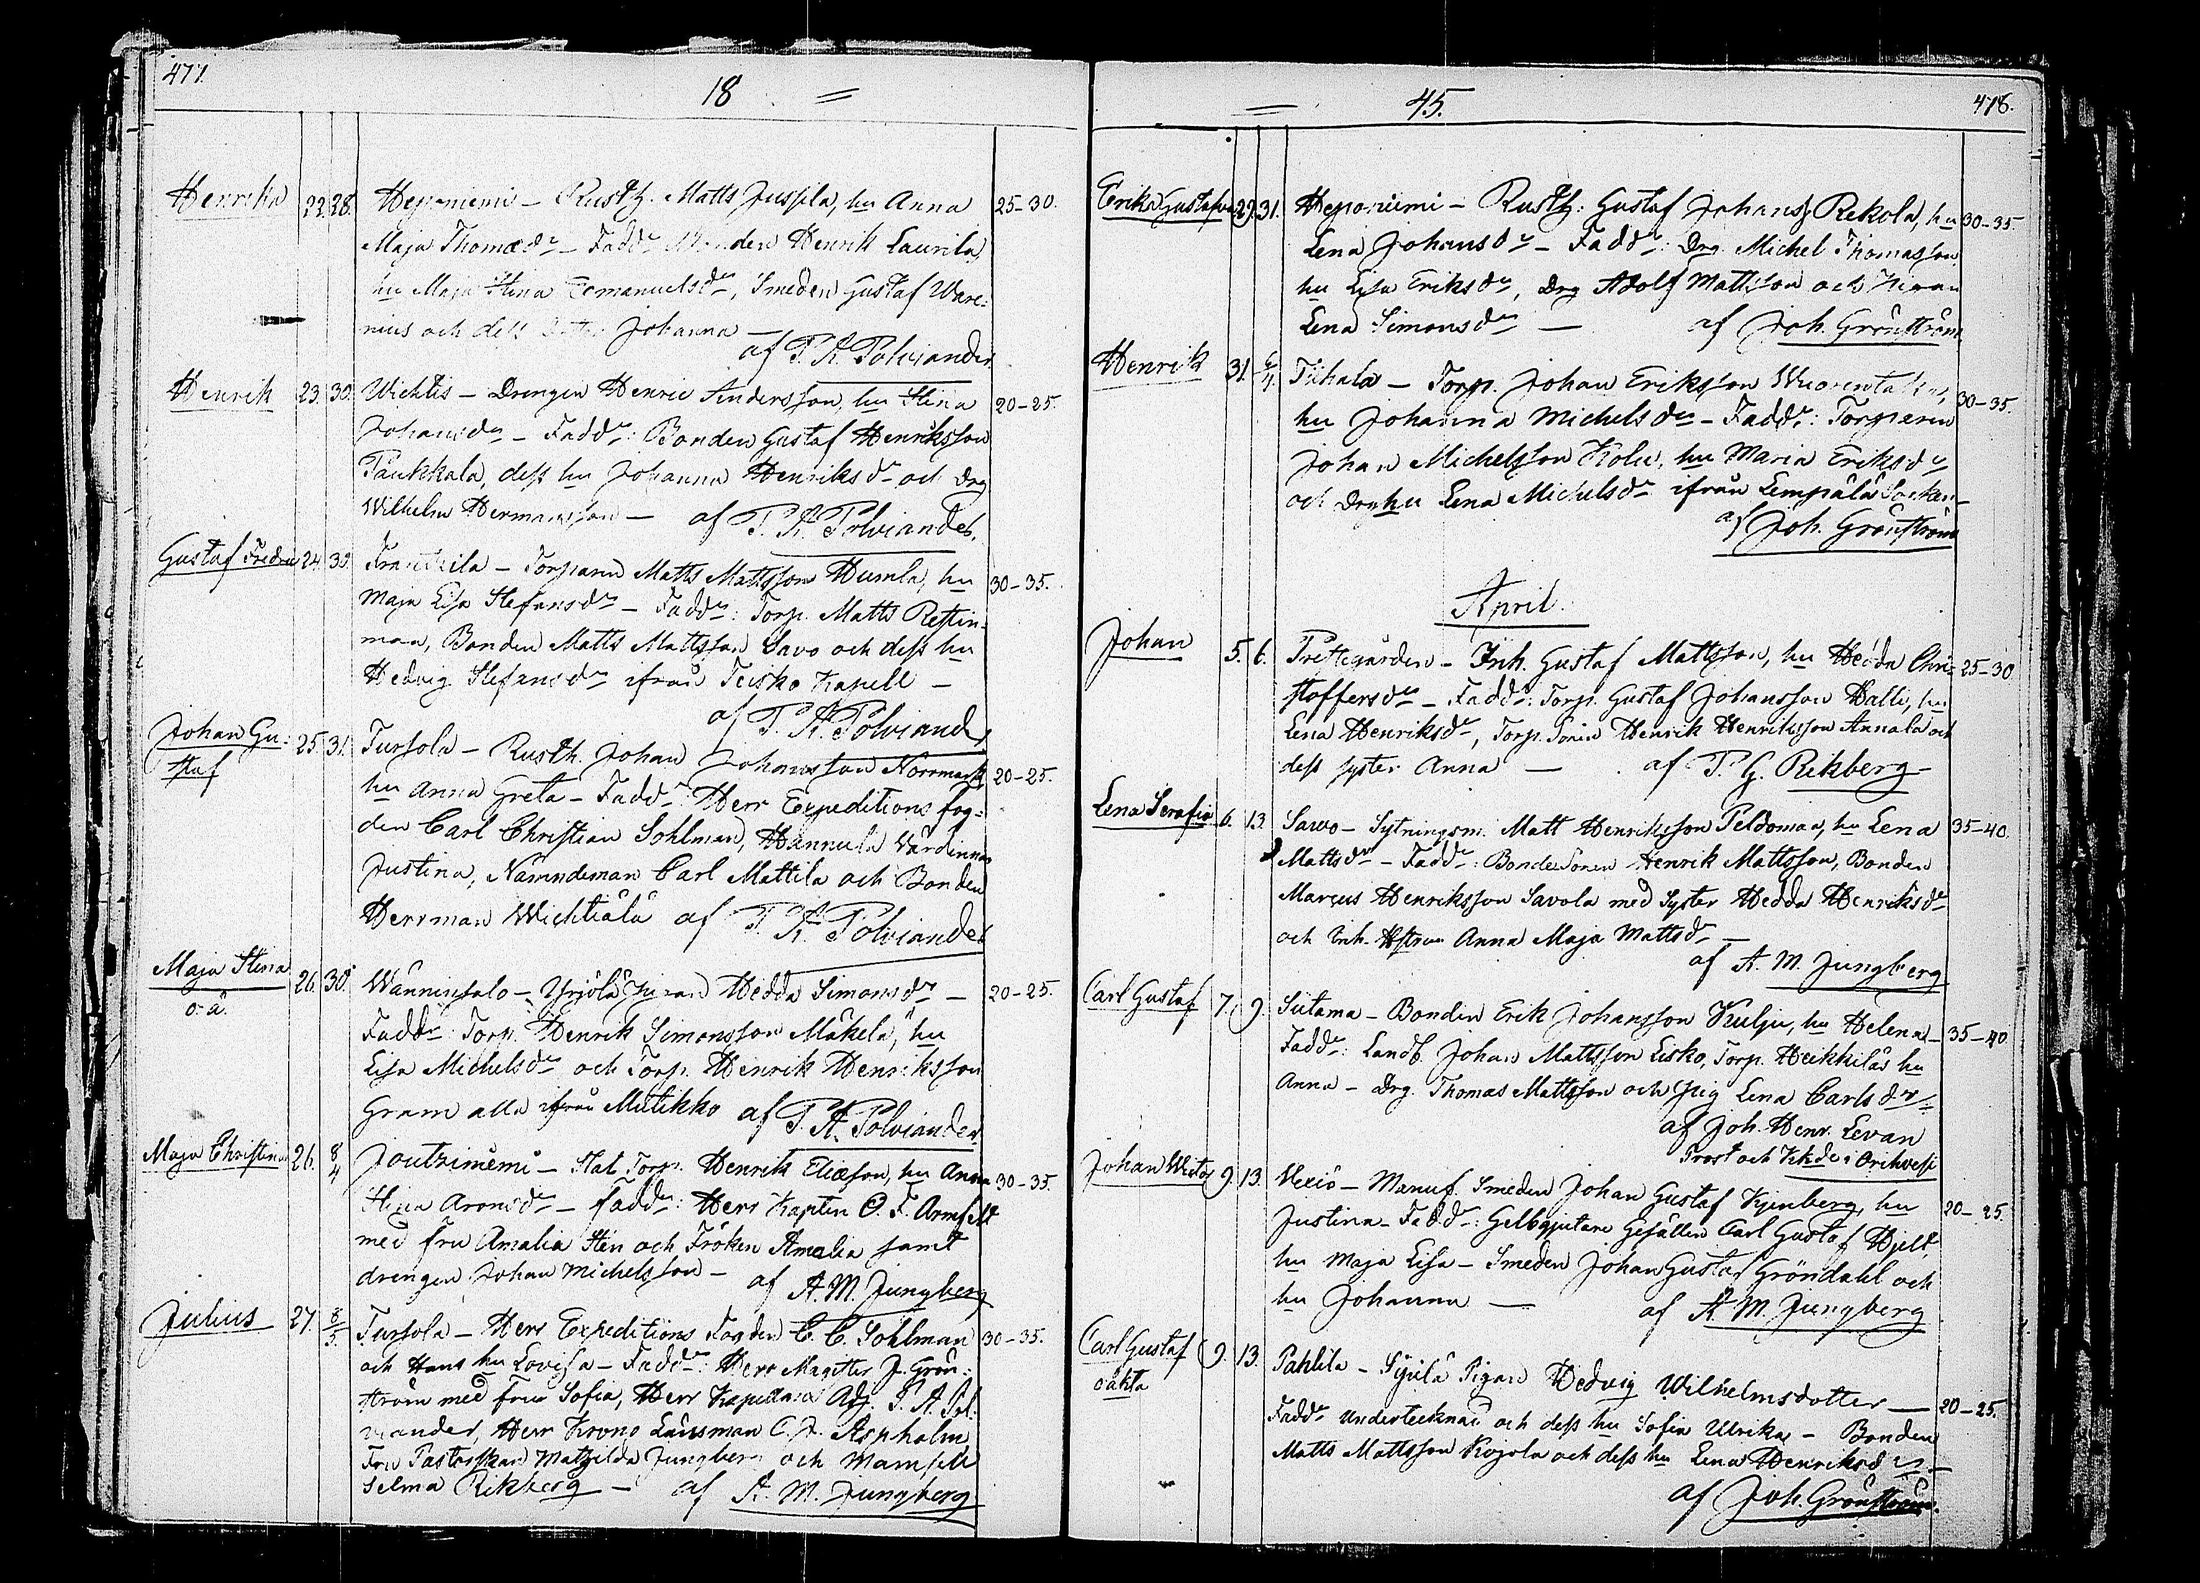 477.
18 =
Henrika 22. 28. Heponiemi – Rusth. Matts Jussila, hu Anna 25–30.
Maja Thomædr – Faddr Bonden Henrik Laurila,
hu Maja Stina Emanuelsdr, Smeden Gustaf Ware-
nius och dess Johanna –
af P. A. Polviander
Henrik 23. 30. Wichtis – Drengen Henric Andersson, hu Stina 20–25.
Johansdr – Faddr: Bonden Gustaf Henriksson
Paukkala, dess hu Johanna Henriksdr och Drg
Wilhelm Hermansson – af P. A. Polviander.
Gustaf Fredric 24. 30. Frantsila – Torparen Matts Mattsson Humla, hu 30–35.
Maja Lisa Stefansdr – Faddr: Torp. Matts Restin-
maa, Bonden Matts Mattsson Savo och dess hu
Hedvig Stefansdr ifrån Teisko Kapell –
af P. A. Polviander
Johan Gu- 25. 31. Tursola – Rusth. Johan Johansson Norrmark, 20–25.
staf
hu Anna Greta – Faddr: Herr Expeditions fog-
den Carl Christian Sohlman, Hannula Värdinnan
Justina, Nämndeman Carl Mattila och Bonden
Herrman Wichtiälä af P. A. Polviander
Maja Stina 26. 30. Wänninsalo – Yrjölä Pigan Hedda Simonsdr – 20–25.
o. ä.
Faddr: Torp. Henrik Simonsson Mäkelä, hu
Lisa Michelsdr och Torp. Henrik Henriksson
Gram alla ifrån Mutikko af P. A. Polviander
Maja Christina 26. 8/4 Joutsiniemi – Stat Torp. Henrik Eliæson, hu Anna 30–35.
Stina Aronsdr – Faddr: Herr Kapten O. F. Armfelt
med fru Amalia Sten och Fröken Amalia samt
drengen Johan Michelsson – af A. M. Jungberg
Julius 27. 8/5. Tursola – Herr Expeditions Fogden C. C. Sohlman 30–35.
och Hans hu Lovisa – Faddr: Herr Magister J. Grön-
ström med Fru Sofia, Herr Kapellans Adj. P. A. Pol-
viander, Herr Krono Länsman C. A. Aspholm
Fru Pastorskan Mathilda Jungberg och Mamsell
Selma Rikberg – af A. M. Jungberg
= 45. 478.
Erika Gustafva 29. 31. Heponiemi – Rusth: Gustaf Johanss Rekola, hu 30–35.
Lena Johansdr – Faddr: Drg Michel Thomasson
hu Lisa Eriksdr, Drg Adolf Mattsson och Pigan
Lena Simonsdr – af Joh. Grönström
Henrik 31. 6/4. Tiihala – Torp. Johan Eriksson 30–35.
hu Johanna Michelsdr – Faddr: Torparen
Johan Michelsson Kolu, hu Maria Eriksdr
och Drg hu Lena Michelsdr ifrån Lempälä Socken –
af Joh. Grönström
April.
Johan 5. 6. Prestegården – Inh. Gustaf Mattsson, hu Hedda Chri- 25–30
stoffersdr – Faddr: Torp. Gustaf Johansson Halli, hu
Lena Henriksdr, Torp. Sonen Henrik Henriksson Annala och
dess syster Anna – af P. G. Rikberg
Lena Serafia 6. 13. Sawo – Sytningsm. Matt Henriksson Peldomaa, hu Lena 35–40.
Mattsdr – Faddr: Bonde Sonen Henrik Mattsson, Bonden
Marcus Henriksson Savola med Syster Hedda Henriksdr
och Inh. Hstrun Anna Maja Mattsdr –
af A. M. Jungberg
Carl Gustaf 7. 9. Siitama – Bonden Erik Johansson Kulju, hu Helena – 35–40
Faddr: Landb. Johan Mattsson Eisko, Torp. Heikkiläs hu
Anna – Drg. Thomas Mattsson och Pig Lena Carlsdr –
af Joh. Henr. Levan
Prost och Kkde i Orihvesi
Johan Victor 9. 13. Vexiö – Manuf. Smeden Johan Gustaf Kjenberg, hu 20–25.
Justina – Faddr: Gelbgjutare Gesällen Carl Gustaf Hjelt,
hu Maja Lisa – Smeden Johan Gustaf Gröndahl och
hu Johanna – af A. M. Jungberg
Carl Gustaf 9. 13. Pahlila – Sipilä Pigan Hedvig Wilhelmsdotter – 20–25.
oäkta
Faddr Undertecknad och dess hu Sofia Ulrika – Bonden
Matts Mattsson Kojola och dess hu Lena Henriksdr –
af Joh. Grönström.